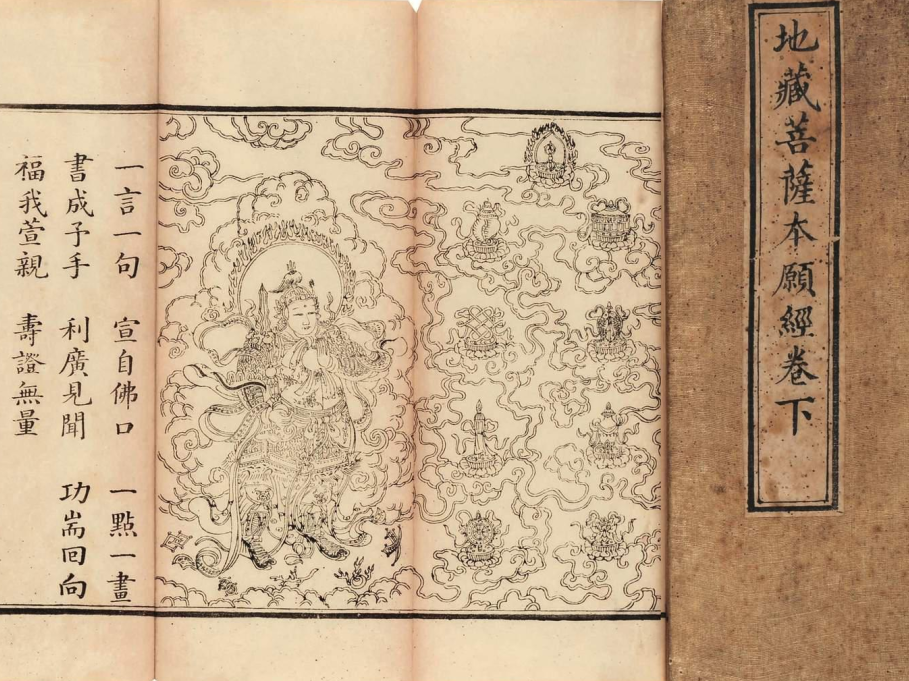 地藏菩薩本願經卷下
一言一句 宣自佛口 一點一畫
書成予手 利廣見聞 功耑囘向
福我萱親 壽證無量